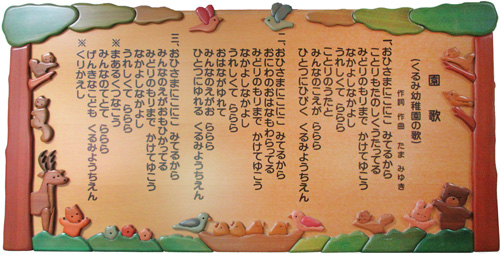 園歌
(くるみ幼稚園の歌)
作詞 作曲 たま みゆき
一、おひさまにこにこ みてるから
ことりもたのしくうたってる
みどりのもりまで かけてゆこう
なかよしなかよし
うれしくて ららら
みんなのこえが ららら
ことりのうたと
ひとつにひびく くるみようちえん
二、おひさまにこにこ みてるから
おにわのおはなもわらってる
みどりのもりまで かけてゆこう
なかよしなかよし
うれしくて ららら
みんなのえがお ららら
おはながゆれて
ひとつにゆれる くるみようちえん
三、おひさまにこにこ みてるから
みんなのえがおもひかってる
みどりのもりまで かけてゆこう
なかよしなかよし
※まあるくつなごう
みんなのてとて ららら
げんきなこども くるみようちえん
※くりかえし